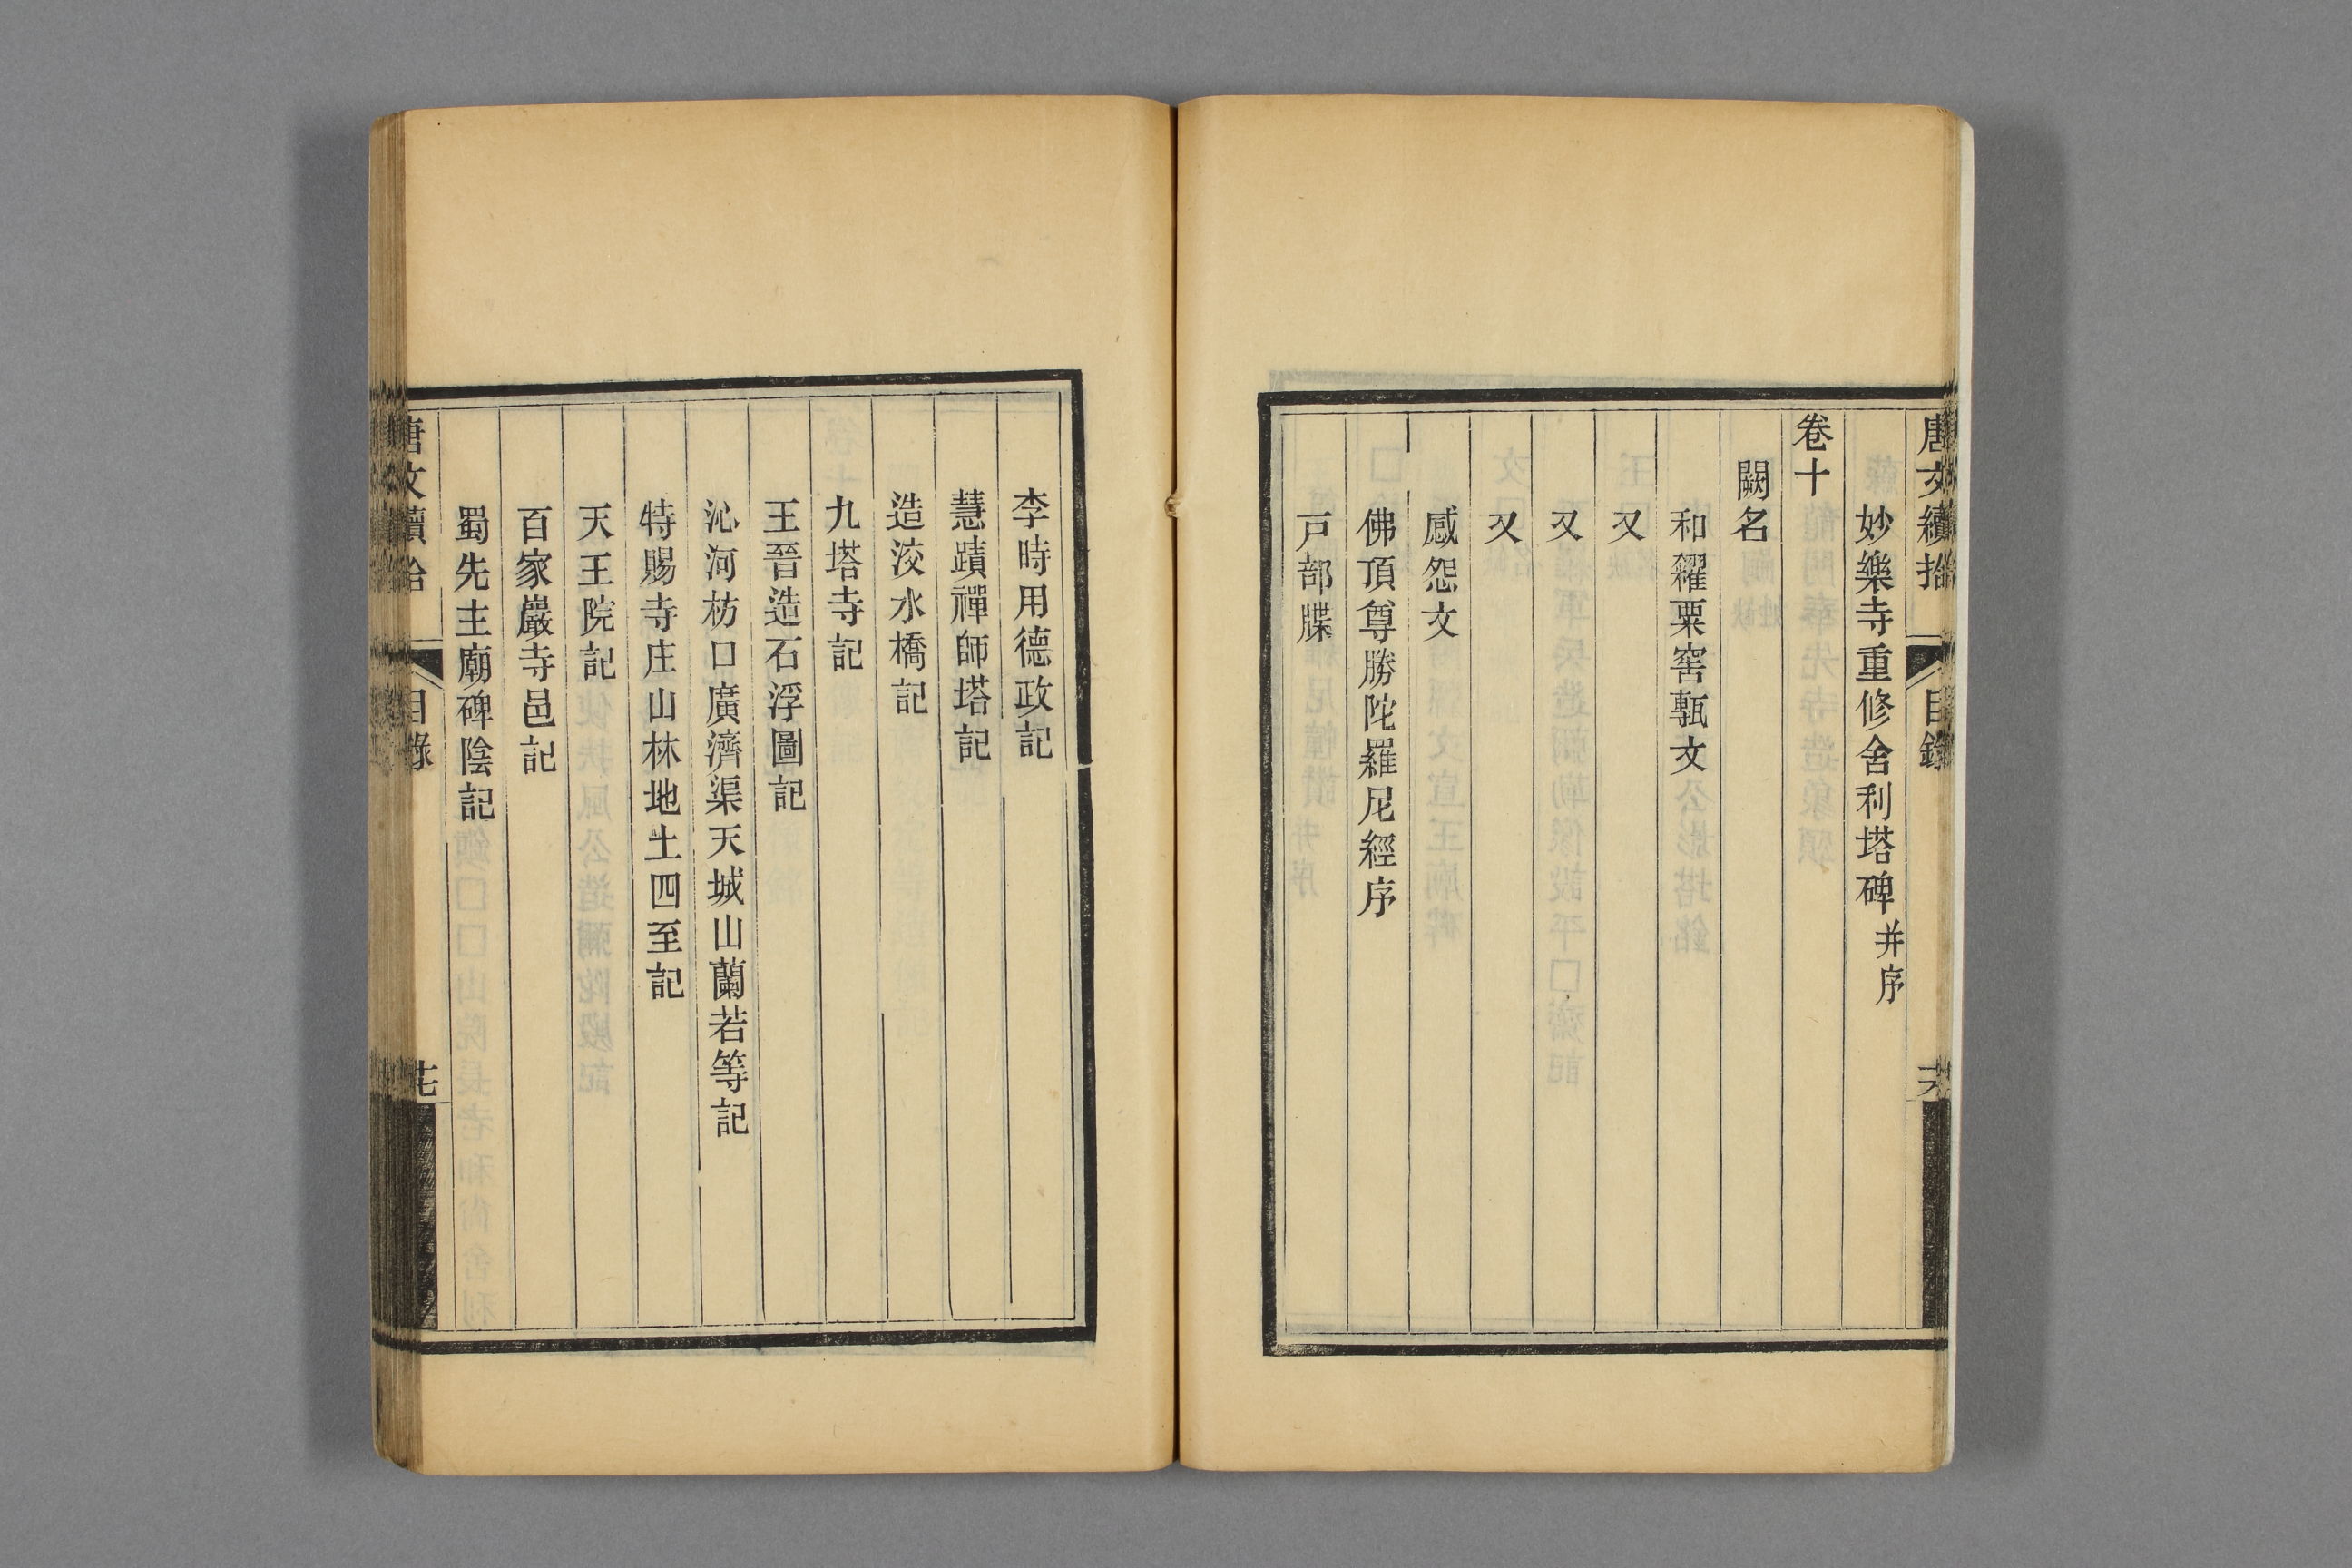 唐文續拾
目錄
妙樂寺重修舍利塔碑并序
卷十
闕名
和糴粟窖甎文
又
又
又
感怨文
佛頂尊勝陀羅尼經序
戸部牒
李時用德政記
慧蹟禪師塔記
造洨水橋記
九塔寺記
王晉造石浮圖記
沁河枋口廣濟渠天城山蘭若等記
特賜寺庄山林地土四至記
天王院記
百家巖寺邑記
蜀先主廟碑陰記
唐文續拾
目錄